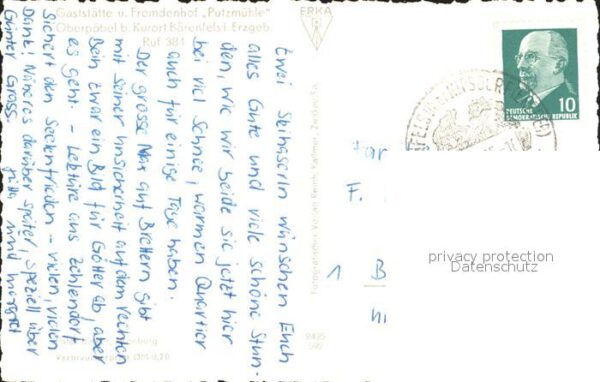 Gaststätte u. Fremdenhof „Putzmühle"
Oberpöbel b. Kurort Bärenfels i. Erzgeb.
Ruf 381
ERKA
Zwei Skihaserln wünschen Euch
alles Gute und viele schöne Stun-
den, wie wir beide sie jetzt hier
bei viel Schnee, warmen Quartier
auch für einige Tage haben.
Der grosse Max auf Brettern gibt
mit seiner Unsicherheit auf dem rechten
Bein zwar ein Bild für Götter ab, aber
es geht. - Lektüre aus Zehlendorf
sichert den Seelenfrieden - vielen, vielen
Dank! Näheres darüber später, speziell über
Günter Grass.
und Margret
DEUTSCHE
DEMOKRATISCHE REPUBLIK
10
F.
1 B
privacy protection
Datenschutz